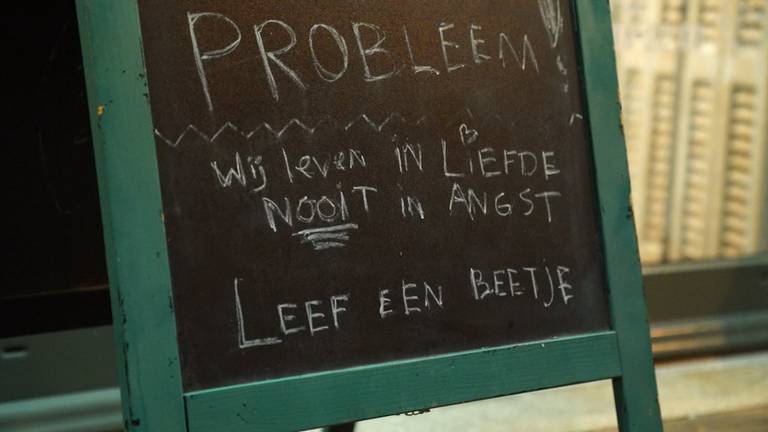 PROBLEEM!
Wij leven in LIEFDE
NOOIT in ANGST
LEEF EEN BEETJE